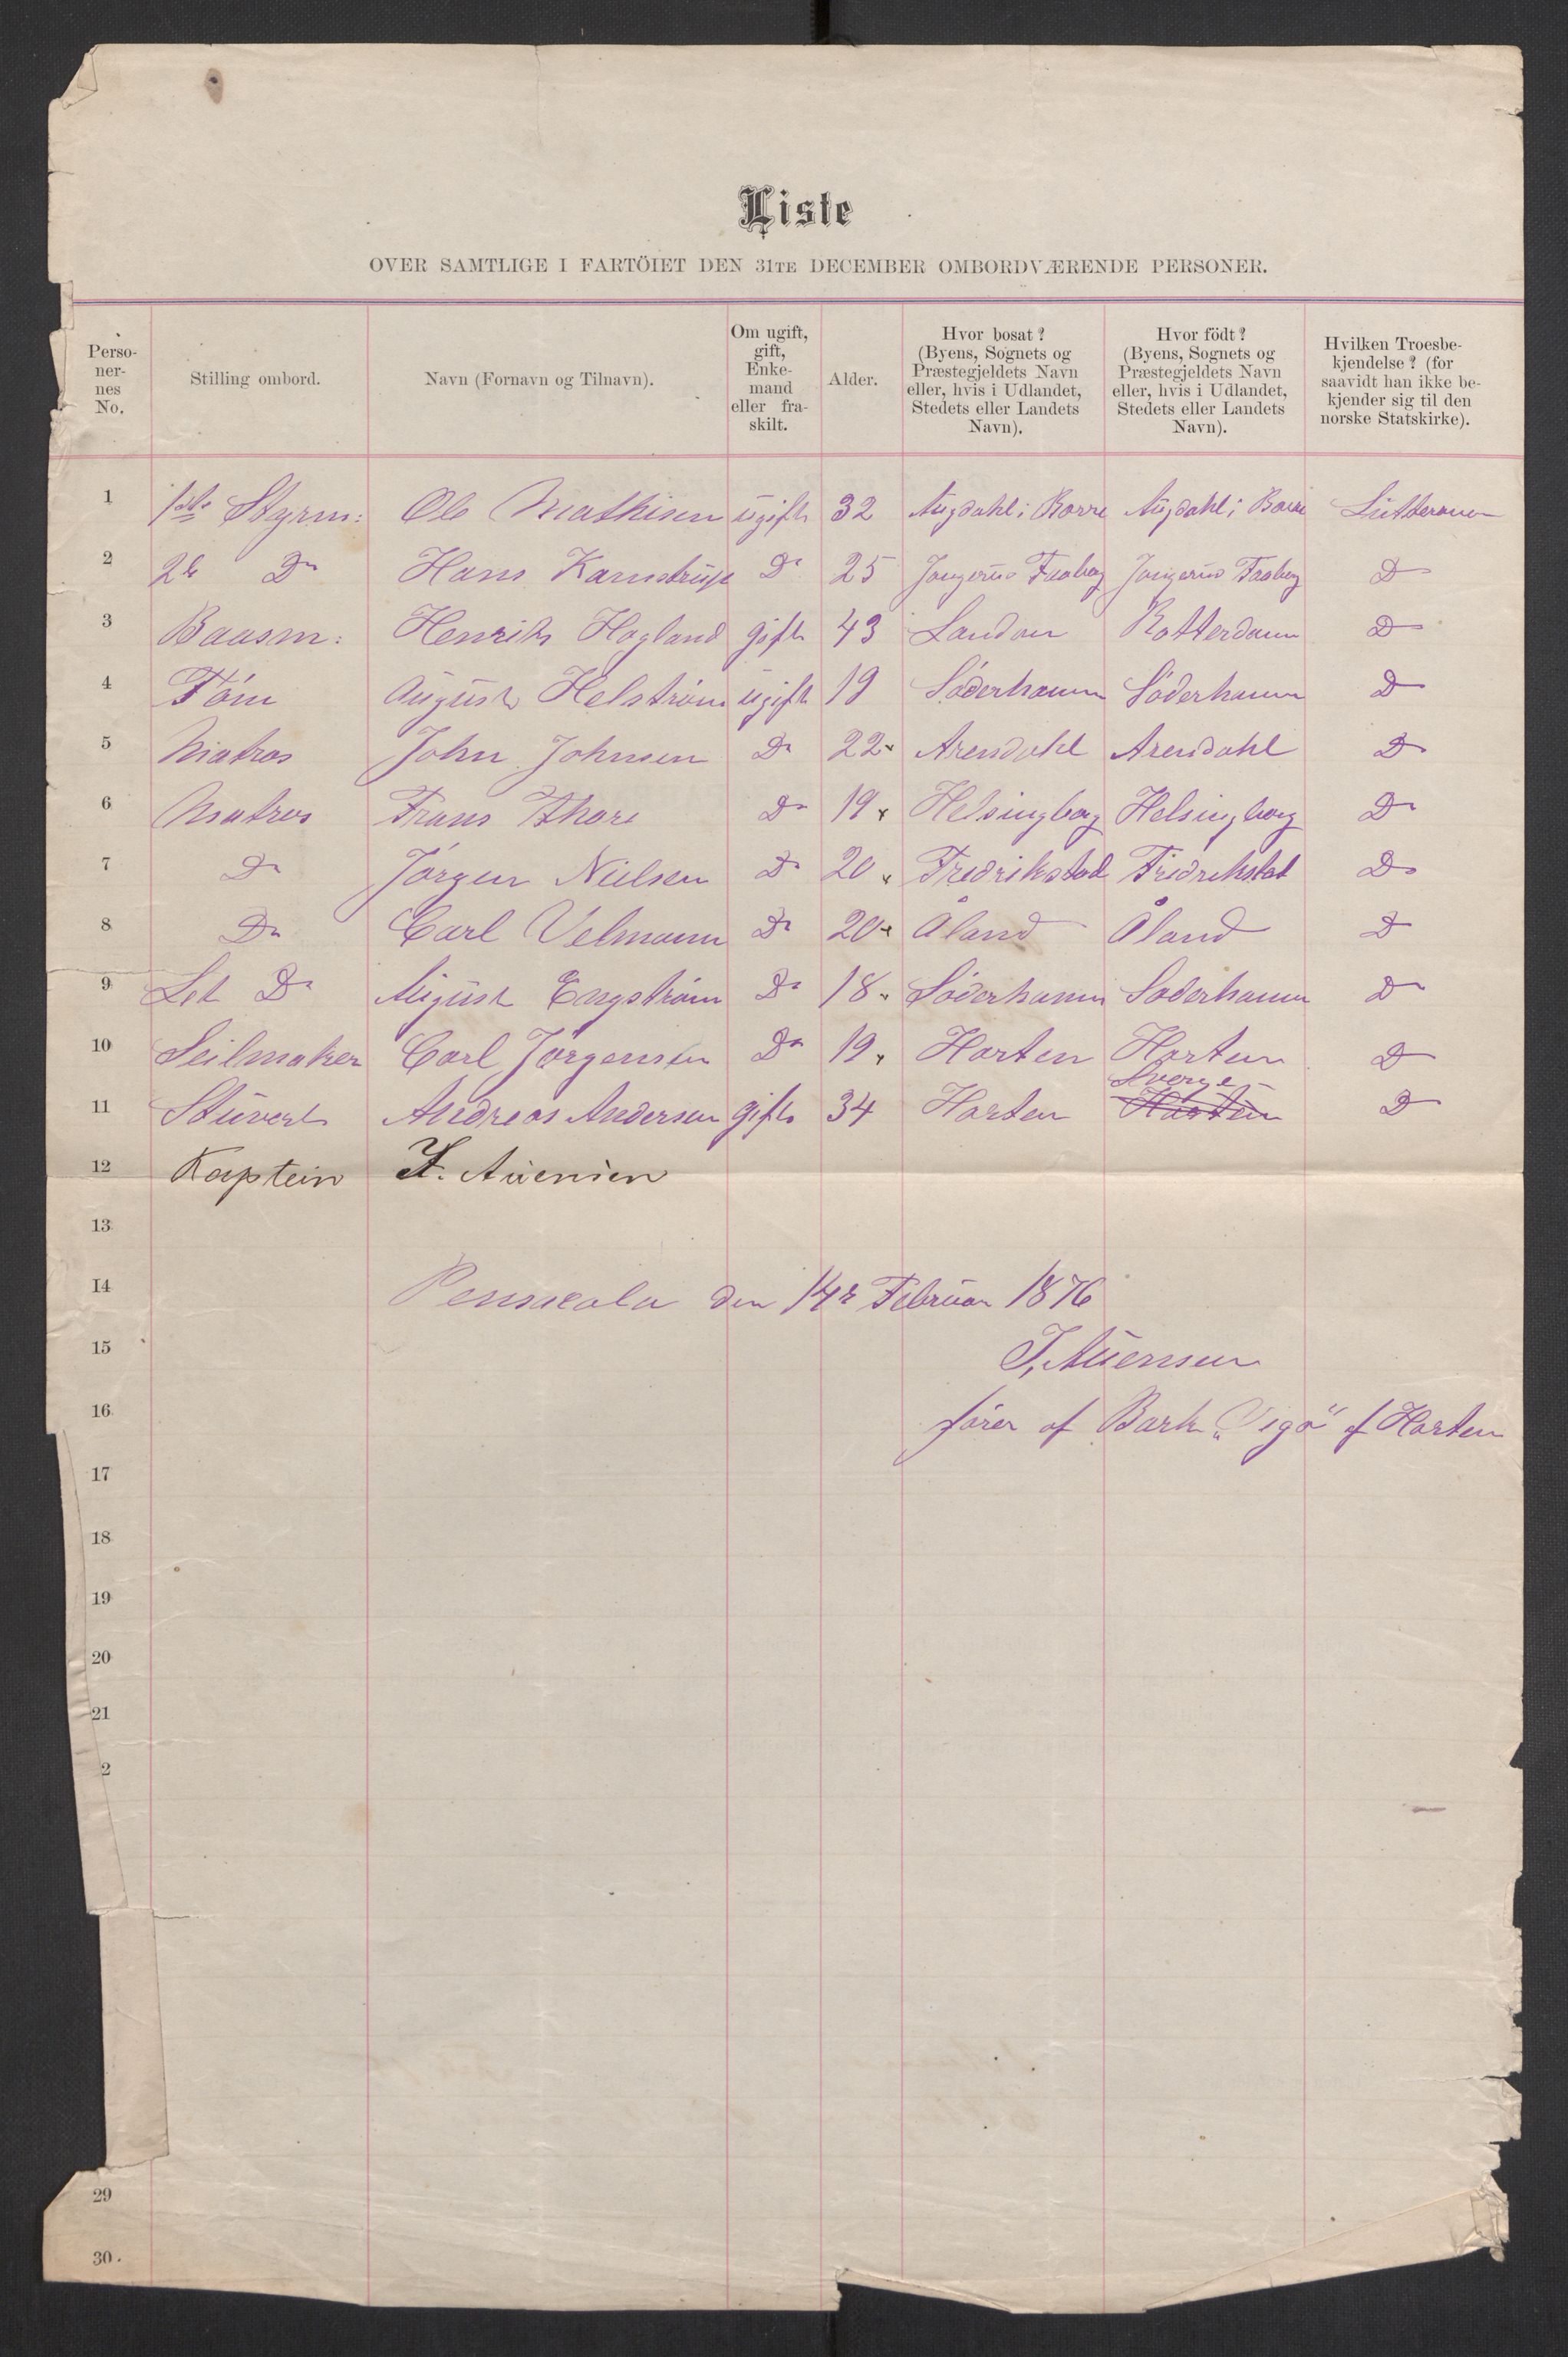 Liste
OVER SAMTLIGE I FARTÖIET DEN 31TE DECEMBER OMBORDVÆRENDE PERSONER.
Perso-
ner-
nes
No.
Stilling ombord.
Navn (Fornavn og Tilnavn).
Om ugift,
gift,
Enke-
mand
eller fra-
skilt.
Alder.
Hvor bosat?
(Byens, Sognets og
Præstegjeldets Navn
eller, hvis i Udlandet,
Stedets eller Landets
Navn).
Hvor födt?
(Byens, Sognets og
Præstegjeldets Navn
eller, hvis i Udlandet,
Stedets eller Landets
Navn).
Hvilken Troesbe-
kjendelse? (for
saavidt han ikke be-
kjender sig til den
norske Statskirke).
1 1ste Styrm: Ole Mathisen ugift 32 Augdahl i Borre Augdahl i Borre
2 2de Do Hans Kamstrup Do 25 Faaberg Faaberg Do
3 Baasm: Henrik Hogland gift 43 London Rotterdam Do
4 Töm August Helström ugift 19 Söderhamn Söderhamn Do
5 Matros John Johnsen Do 22 Arendahl Arendahl Do
6 Matros Frans Thore Do 19 Helsingborg Helsingborg Do
7 Do Jörgen Nielsen Do 20 Fredrikstad Fredrikstad Do
8 Do Carl Velmann Do 20 Åland Åland Do
9 Let Do August Engström Do 18 Söderhamn Soderhamn Do
10 Seilmaker Carl Jörgensen Do 19 Horten Horten Do
11 Stüvert Andreas Andersen gift 34 Horten Sverge Horten Do
12 Kaptein Auensen
13
14 Pensacola den 14de Februar 1876
15 Auensen
16 förer af Bark „Vigo" af Horten
17
18
19
20
21
2
29
30